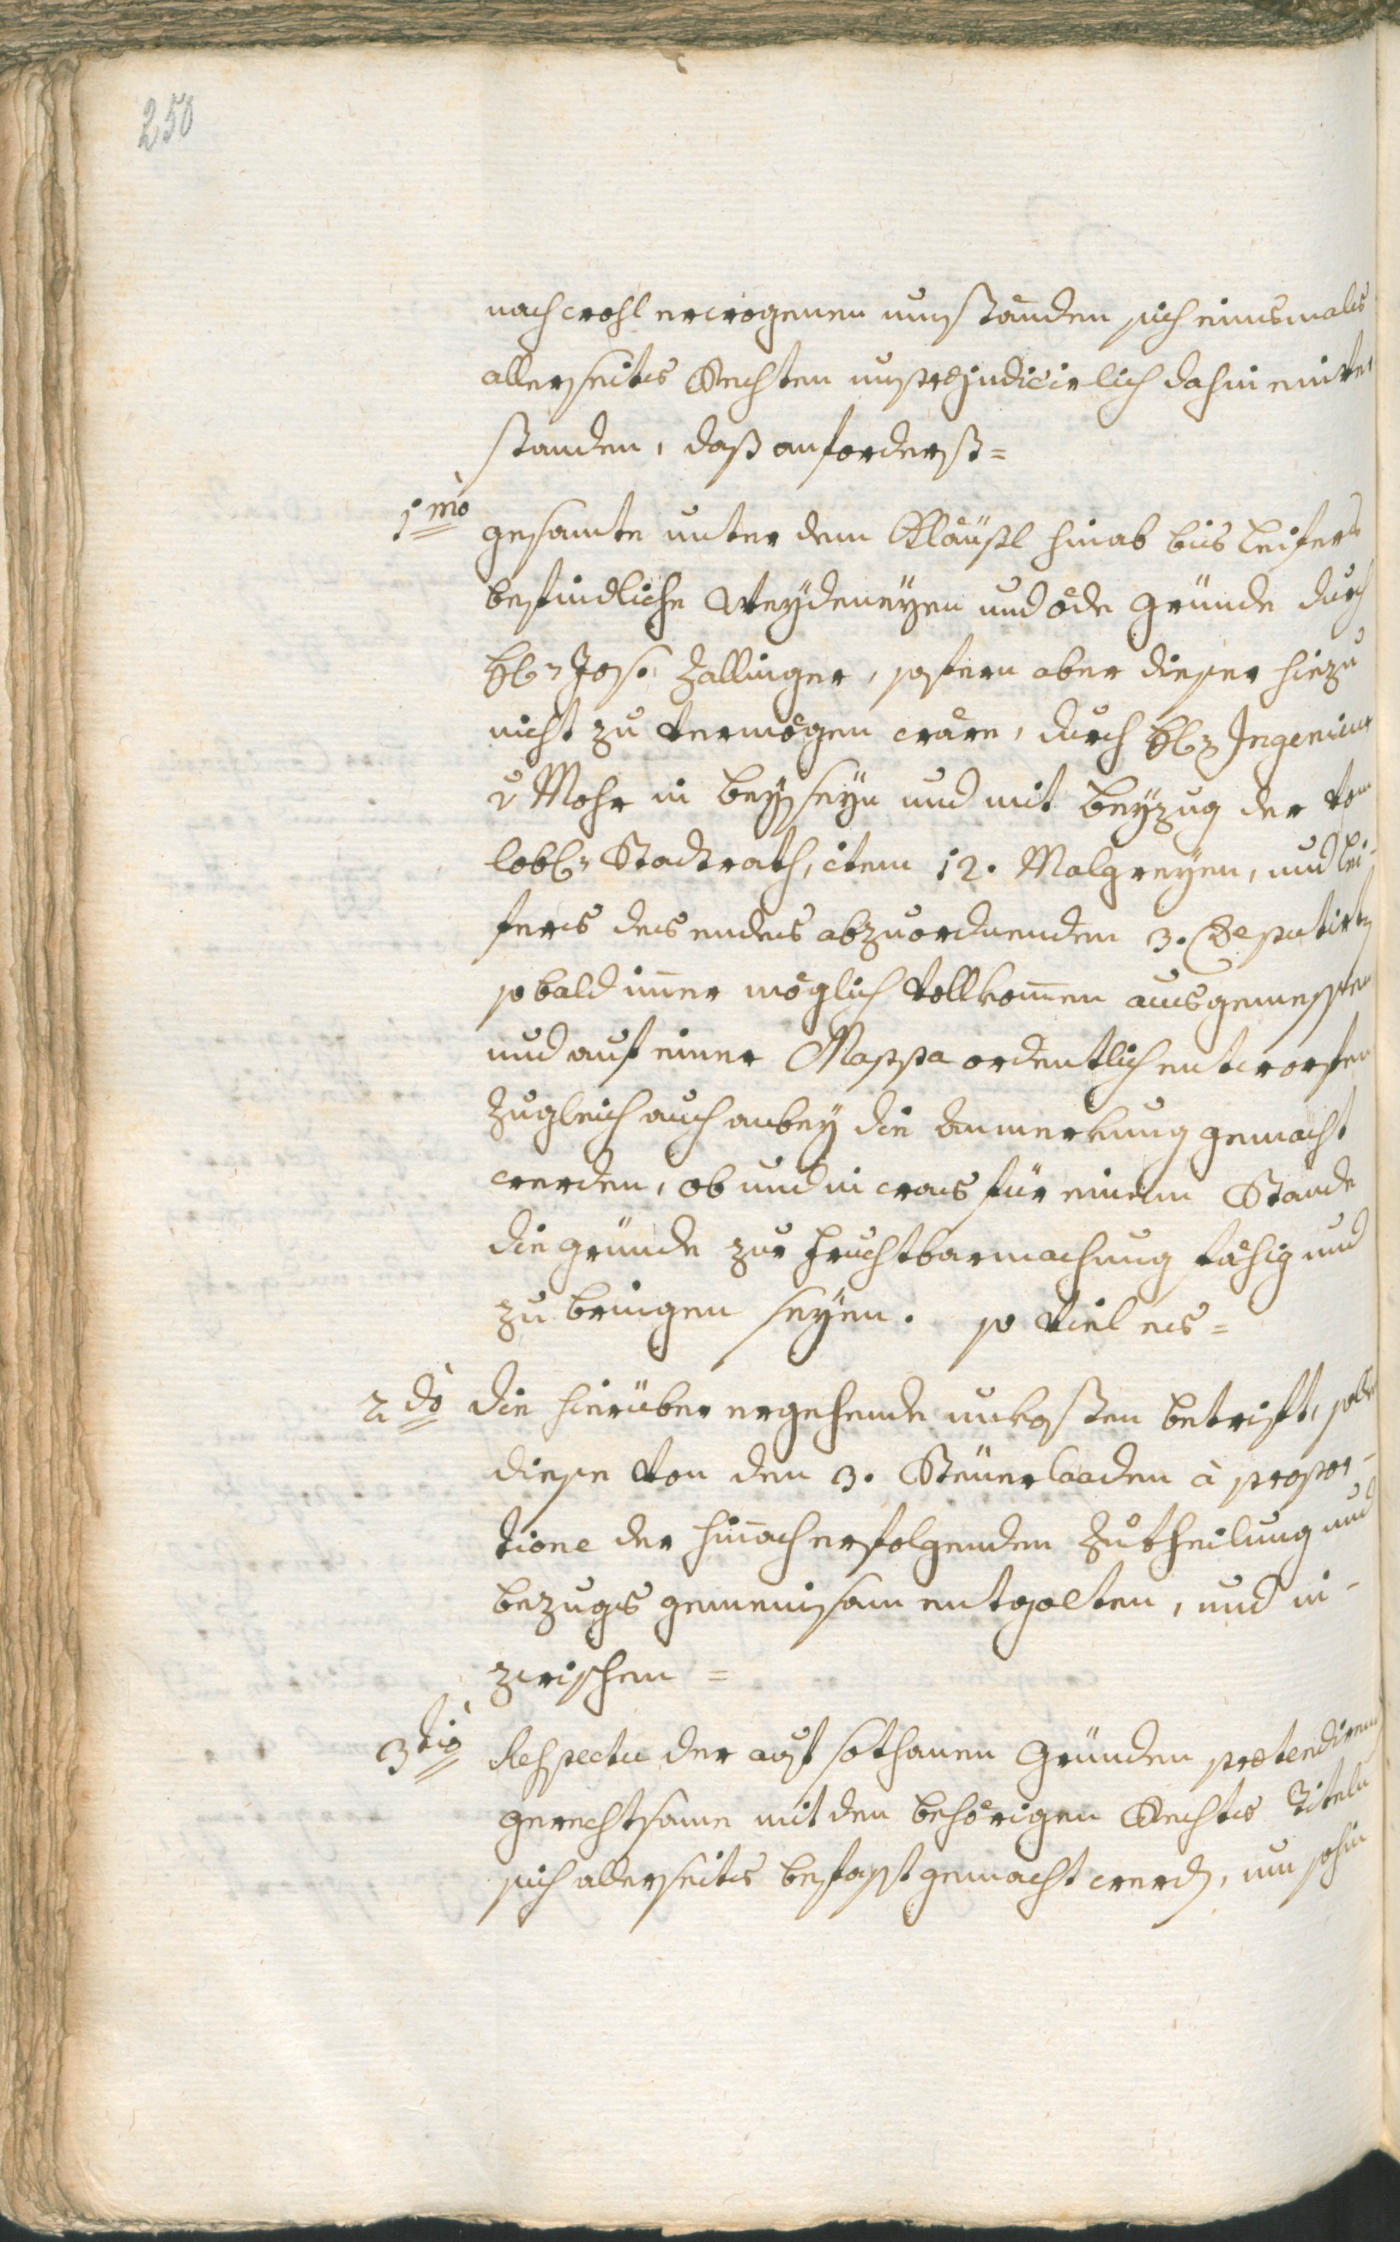 250
nach wohl erwogenen umständen sich einsmals
allerseits Rechten unpræjudicirlich dahin einver
standen, daß anforderst=
1mò gesamte unter dem Kläusl hinab bis Leifers
befindliche Weydeneyen und öde gründe durch
H: Jos. Zallinger, sofern aber dieser hiezu
nicht zu vermögen wäre, durch H: Ingenieur
v Mohr in beyseyn und mit beyzug der vom
löbl: Stadtrath, item 12. Malgreyen, und Lei-
fers des endes abzuordnenden 3. Deputirten
so bald immer möglich vollkommen ausgemessen
und auf einer Mappa ordentlich entworfen
zugleich auch anbey die Anmerkung gemacht
werden, ob und in was für einem Stande
die gründe zur fruchtbarmachung fähig und
zu bringen seyen. so viel es=
2dò die hierüber ergehende unkosten betrift, sollen
diese von den 3. Steuerladen à propor-
tione der hinach erfolgenden Zutheilung und
bezugs gemeinsam entgolten, und in-
zwischen =
3tiò Respectu der auf sothanen Gründen prætendirenden
gerechtsame mit den behörigen Rechts Titeln
sich allerseits befasst gemacht werden, um sohin